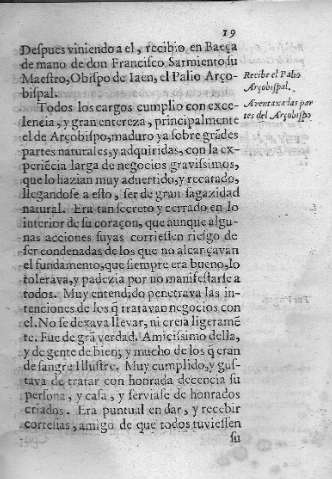 19
Despues viniendo a el, recibio en Baeça
de mano de don Francisco Sarmiento su
Maestro, Obispo de Iaen, el Palio Arço-
bispal.
Recibe el Palio
Arçobispal.
Todos los cargos cumplio con exce-
lencia, y gran entereza, principalmente
el de Arçobispo, maduro ya sobre grãdes
partes naturales, y adquiridas, con la ex-
periẽcia larga de negocios grauissimos,
que lo hazian muy aduertido, y recatado,
llegandose a esto, ser de gran sagazidad
natural. Era tan secreto y cerrado en lo
interior de su coraçon, que aunque algu-
nas acciones suyas corriessen riesgo de
ser condenadas de los que no alcançavan
el fundamento, que siempre era bueno, lo
tolerava, y padezia por no manifestarle a
todos. Muy entendido penetrava las in-
tenciones de los q̃ tratavan negocios con
el. No se dexava llevar, ni creia ligeramẽ
te. Fue de grã verdad. Amicissimo della,
y de gente de bien; y mucho de los q̃ eran
de sangre Illustre. Muy cumplido, y gus-
tava de tratar con honrada decencia su
persona, y casa, y serviase de honrados
criados. Era puntual en dar, y recebir
cortesias, amigo de que todos tuviessen
su
Aventaxadas par
tes del Arçobispo